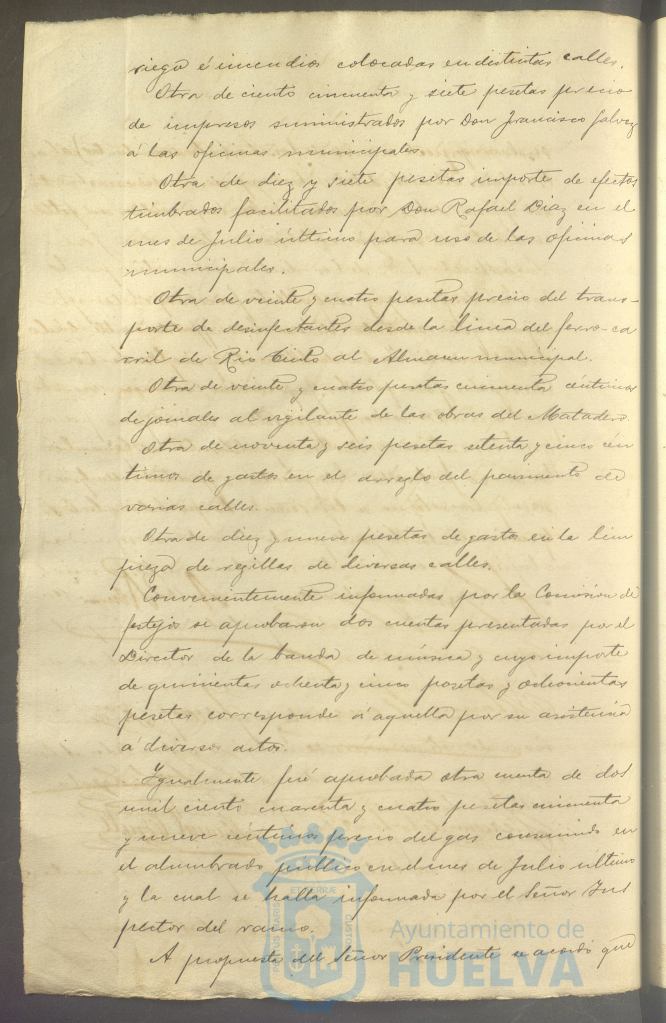 riego é incendios colocadas en distintas calles.
Otra de ciento cincuenta y siete pesetas precio
de impresos suministrados por Don Francisco Galvez
á las oficinas municipales.
Otra de diez y siete pesetas importe de efectos
timbrados facilitados por Don Rafael Diaz en el
mes de Julio último para uso de las oficinas
municipales.
Otra de veinte y cuatro pesetas precio del trans-
porte de desinfectantes desde la linea del ferro-ca
rril de Rio Tinto al Almacen municipal.
Otra de veinte y cuatro pesetas cincuenta céntimos
de jornales al vigilante de las obras del Matadero.
Otra de noventa y seis pesetas setenta y cinco cén
timos de gastos en el arreglo del pavimento de
varias calles.
Otra de diez y nueve pesetas de gastos en la lim
pieza de regillas de diversas calles.
Convenientemente informadas por la Comision de
festejos se aprobaron dos cuentas presentadas por el
Director de la banda de música y cuyo importe
de quinientas ochenta y cinco pesetas y ochocientas
pesetas corresponde á aquella por su asistencia
á diversos actos.
Igualmente fué aprobada otra cuenta de dos
mil ciento cuarenta y cuatro pesetas cincuenta
y nueve centimos precio del gas consumido en
el alumbrado público en el mes de Julio ultimo
y la cual se halla informada por el Señor Ins
pector del ramo.
A propuesta del Señor Presidente se acordó que
Ayuntamiento de
HUELVA